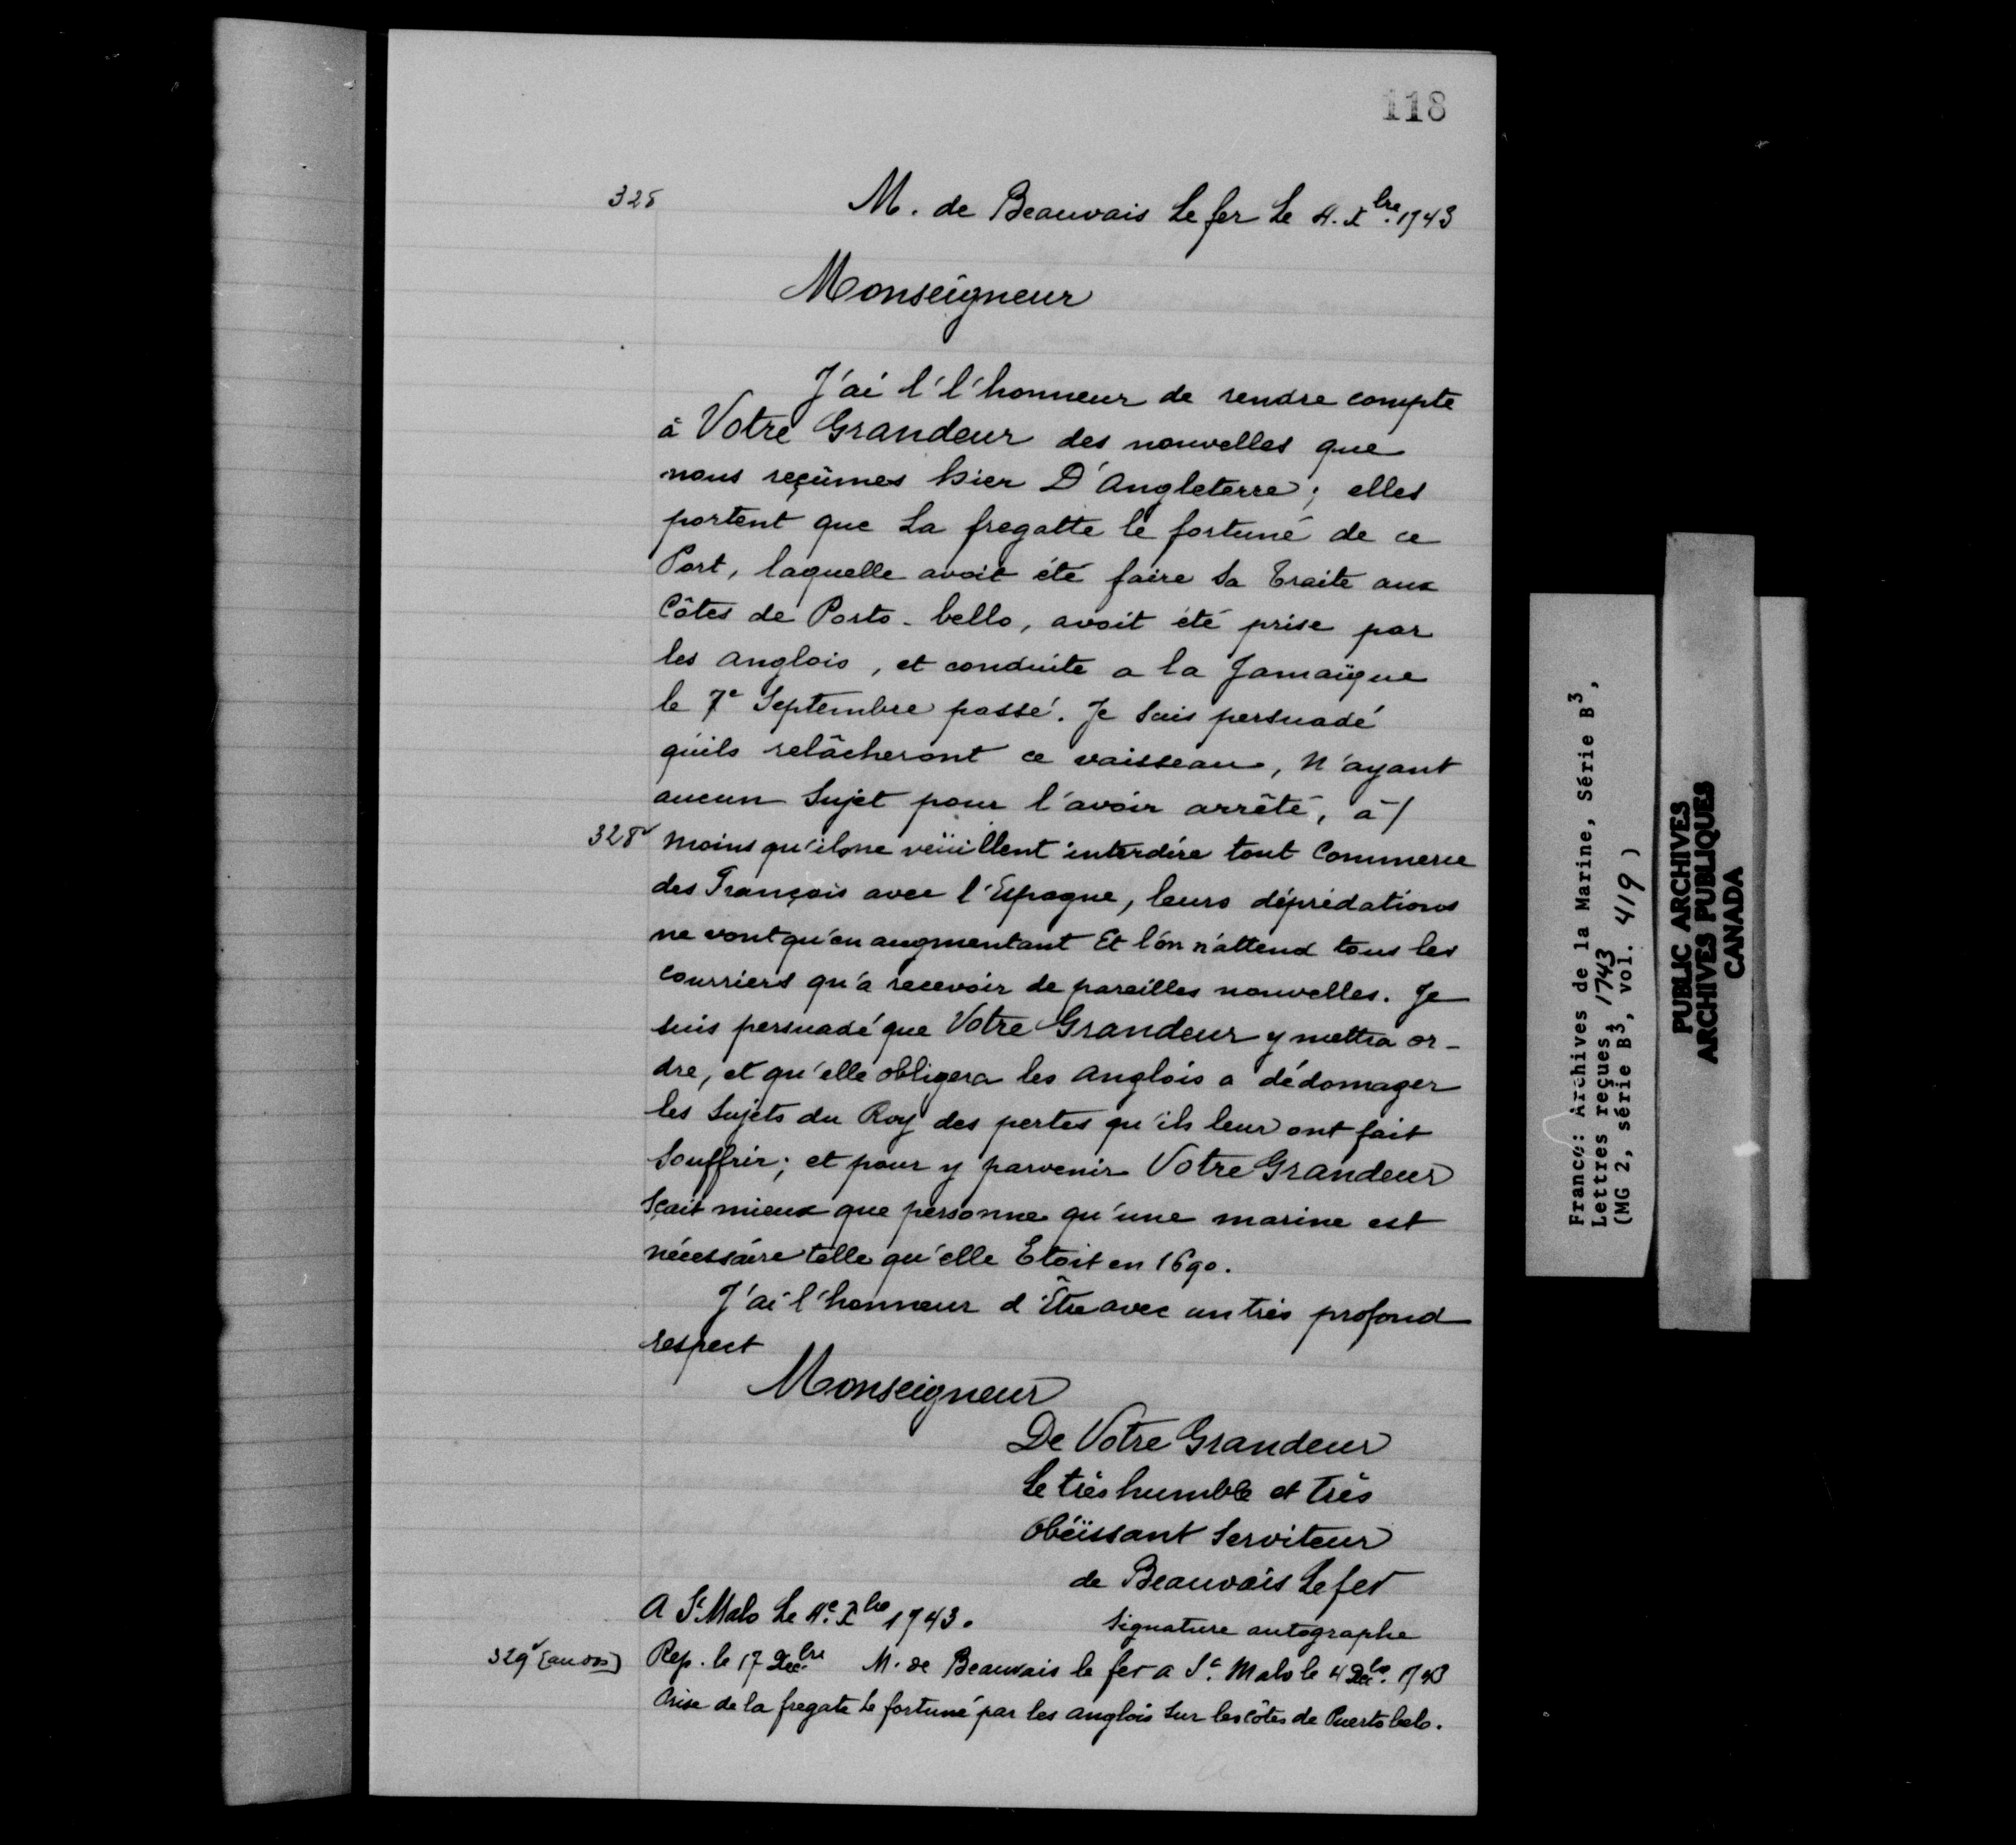 118
328
M. de Beauvais Le fer Le 4. Xbre. 1743
Monseigneur
J'ai l'l'honneur de rendre compte
à Votre Grandeur des nouvelles que
nous reçûmes hier D'Angleterre; elles
portent que La fregatte le fortuné de ce
Port, laquelle avoit été faire Sa Traite aux
Côtes de Porto-bello, avoit été prise par
les anglois, et conduite a la Jamaïque
le 7e Septembre passé. Je Suis persuadé
qu'ils relâcheront ce vaisseau, N'ayant
aucun Sujet pour l'avoir arrêté, à/
328v moins qu'ils ne veüillent interdire tout Commerce
des François avec l'Espagne, leurs déprédations
ne vont qu'en augmentant Et l'on n'attend tous les
Courriers qu'a recevoir de pareilles nouvelles. Je
suis persuadé que Votre Grandeur y mettra or-
dre, et qu'elle obligera les anglois a dédomager
les Sujets du Roy des pertes qu'ils leur ont fait
Souffrir; et pour y parvenir Votre Grandeur
Sçait mieux que personne qu'une marine est
nécessaire telle qu'elle Etoit en 1690.
J'ai l'honneur d'Être avec un très profond
respect
Monseigneur
De Votre Grandeur
Le très humble et très
Obéïssant Serviteur
de Beauvais Lefer
A St. Malo Le 4e. Xbre 1743.
Signature autographe
329v [au dos] Rep. le 17 Decbre. M. de Beauvais le fer a St. Malo le 4 Decbre. 1743
Prise de la fregate Le fortuné par les anglois Sur les côtes de Puerto belo.
France: Archives de la Marine, Série B3,
Lettres reçues, 1743
(MG 2, série B3, vol. 419)
PUBLIC ARCHIVES
ARCHIVES PUBLIQUES
CANADA